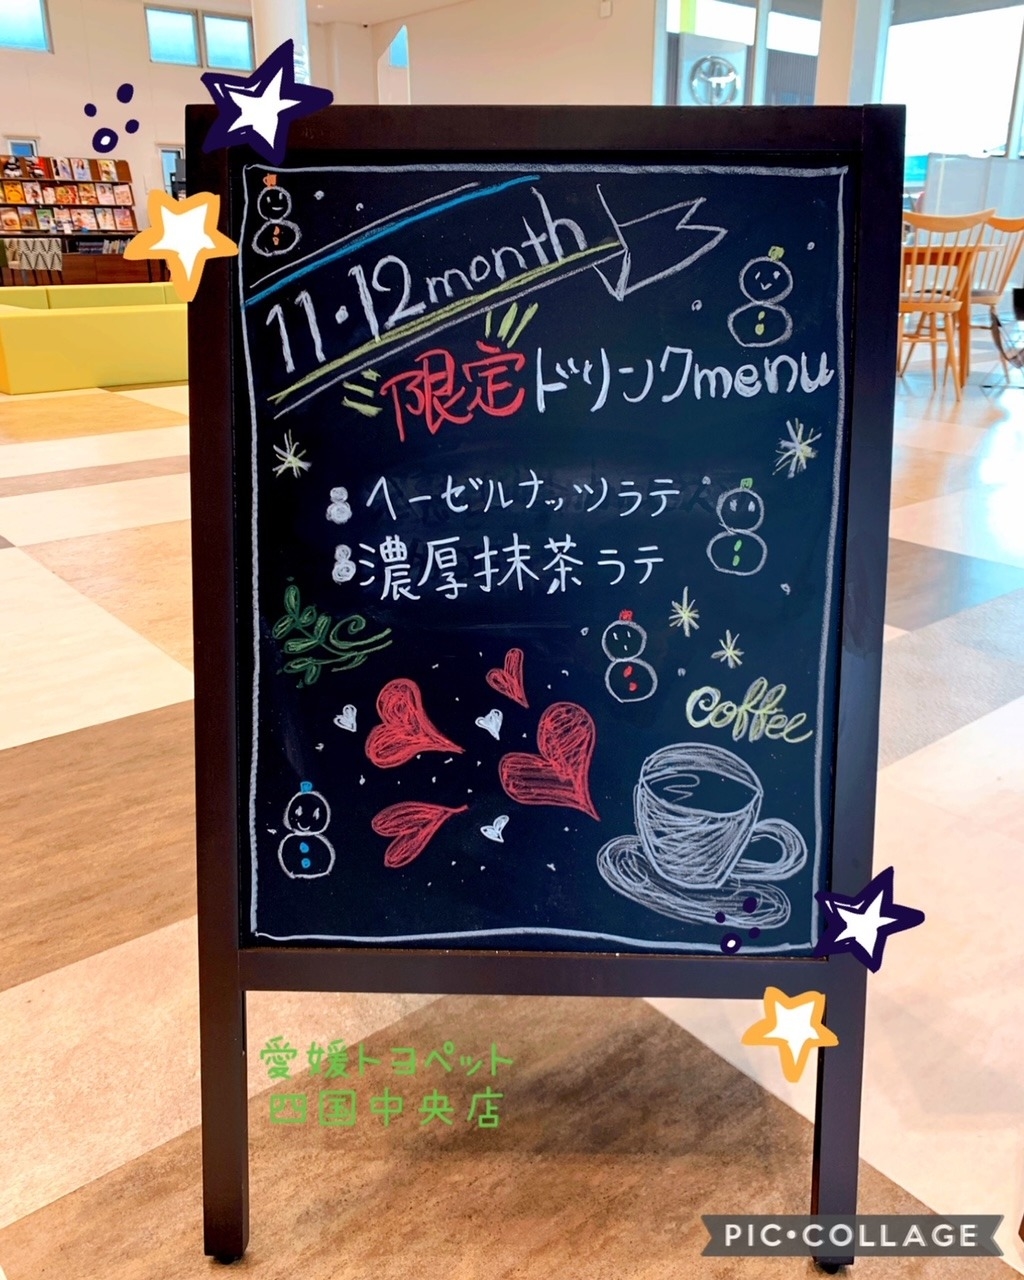 11・12month
限定ドリンクmenu
ヘーゼルナッツラテ
濃厚抹茶ラテ
coffee
愛媛トヨペット
四国中央店
PIC•COLLAGE